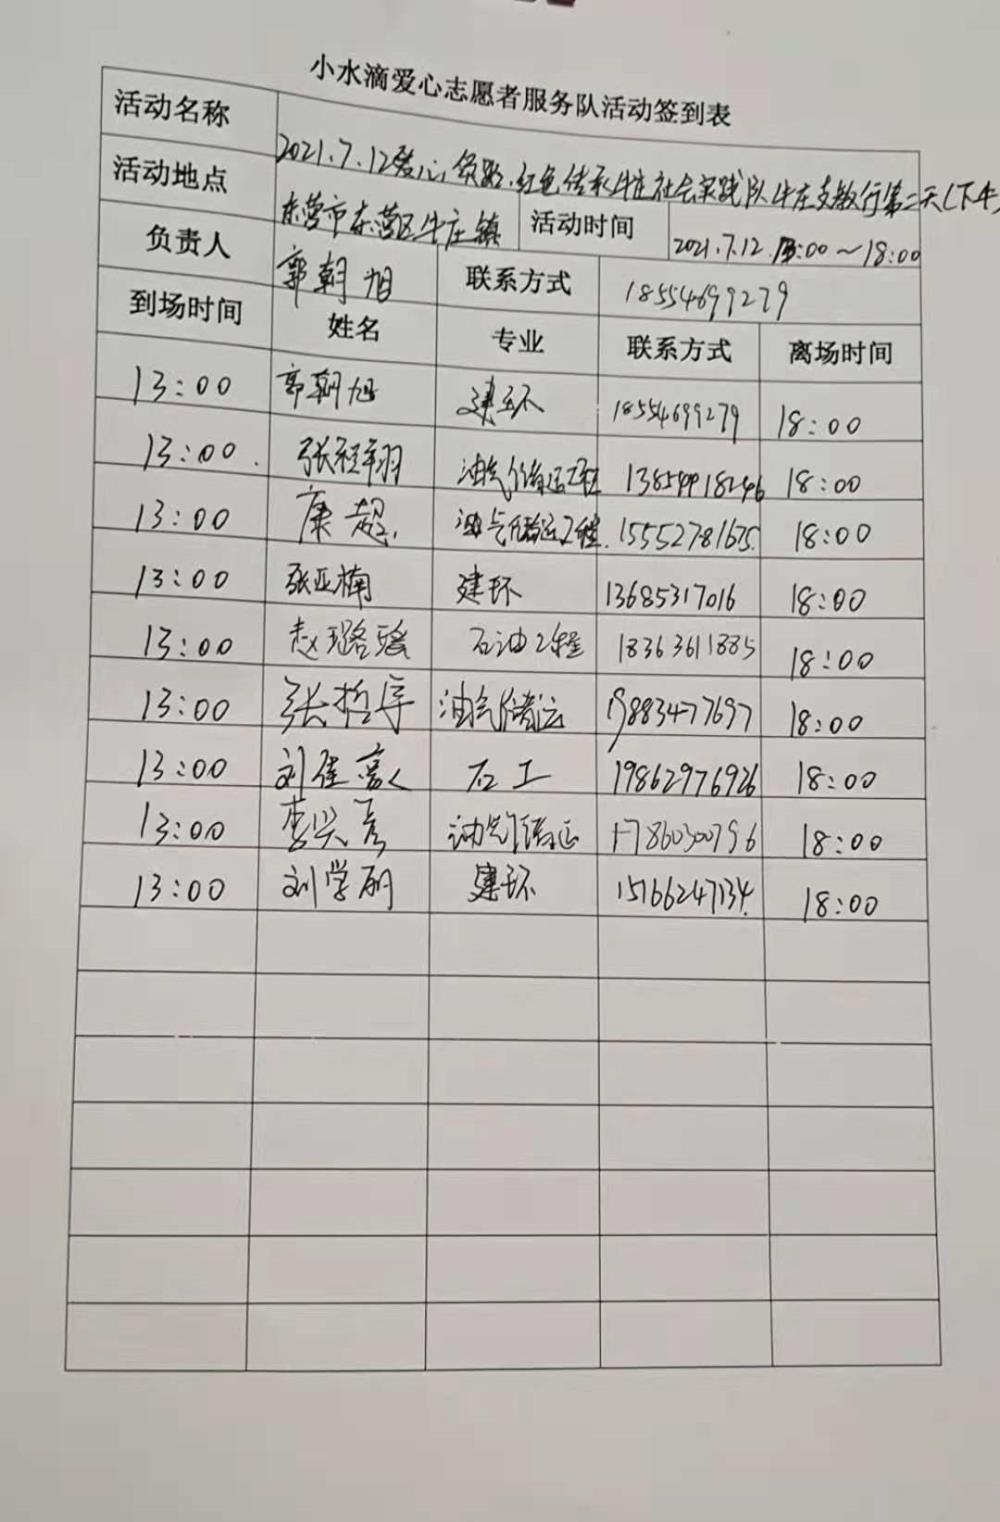 小水滴爱心志愿者服务队活动签到表
活动名称 2021.7.12爱心 红色传承牛庄社会实践队牛庄支教行第二天(下午
活动地点 东营市东营区牛庄镇 活动时间 2021.7.12 13:00～18:00
负责人 郭朝旭 联系方式 18554699279
到场时间 姓名 专业 联系方式 离场时间
13:00 郭朝旭 建环 18554699279 18:00
13:00. 张程翔 油气储运工程 18:00
13:00 康超. 油气储运工程. 15552781675. 18:00
13:00 张亚楠 建环 13685317016 18:00
13:00 赵璐瑶 石油工程 18363611885 18:00
13:00 张哲宇 油气储运 19883477697 18:00
13:00 刘佳 石工 19862976926 18:00
13:00 李兴彦 油气储运 17860300796 18:00
13:00 刘学 建环 15166247134. 18:00